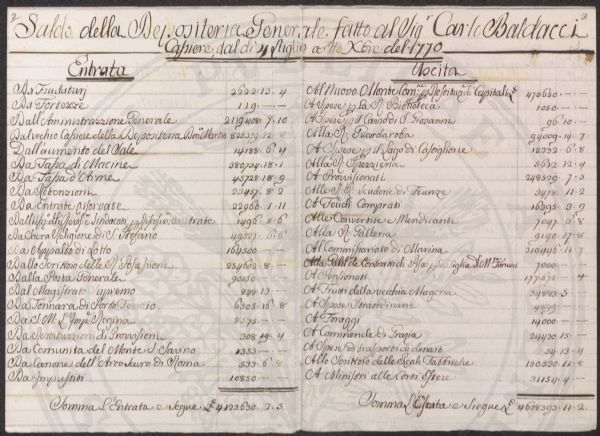 2 3
Saldo della Depositeria Generale fatto al Sigr Carlo Baldacci
Capiere, dal dì 4 Luglio a tto Xbre del 1770
Entrata
Da Fruttuarj 2602.13.4
Da Fortezze 119.—.—
Dall'Amministrazione Generale 2119408.7.10
Dal vecchio Capiere della Depositeria 82579.12.4
Dall'aumento del Sale 14188.6.4
Da Tassa di Macine 380734.18.1
Da Tassa d'Arme 45728.18.9
Da Retenzioni 23457.8.2
Da Entrate riservate 22966.1.11
1496.8.6
Da Sacra Religione di S. Stefano 49537.6.6
Da Appalto di Lotto 164500.—.—
Dallo Scrittoio delle Possessioni 254602.8.—
Dalla Posta Generale 90100.—.—
Dal Magistrato Supremo 499.13.—
Da Tonnara di Porto Ferraio 6305.16.8
Da S.M. L'Impce Regina 8575.—.—
Da Restituzioni di Provvisioni 308.19.4
Da Comunità del Monte S. Savino 1353.—.—
Da Canone dell'Arcivescovo di Roma 533.6.8
Da Imprestiti 10850.—.—
Somma L'Entrata e Segue £ 4123630.2.5
Uscita
Al Nuovo Monte Capitali £ 470660.—.—
A Spese per la Biblioteca 1050.—.—
A Spese per il Campo di S. Giovanni 96.10.—
Alla Guardaroba 94009.14.7
A Spese per il Lago di Castiglione 12332.6.8
Alla Spezieria 5632.12.4
A Provvisionati 248579.7.5
Alle Scuderie di Firenze 3473.11.2
A Feudi Comprati 16395.9.9
Alle Convertite e Mendicanti 7047.9.8
Alla Galleria 9140.17.8
Al Commissariato di Marina 310446.11.7
7000.—.—
A Pensionati 177651.—.4
A Frutti della vecchia Magona 34883.5
A Spese Straordinarie 4899.—.—
A Foraggi 14000.—.—
A Commende di Grazia 24430.15.—
A Spese di trasporti di denaro 54.13.4
Allo Scrittoio delle Reali Fabbriche 150520.11.8
A Ministri alle Corti Estere 31154.9.—
Somma L'Uscita e Siegue £ 4638393.11.2